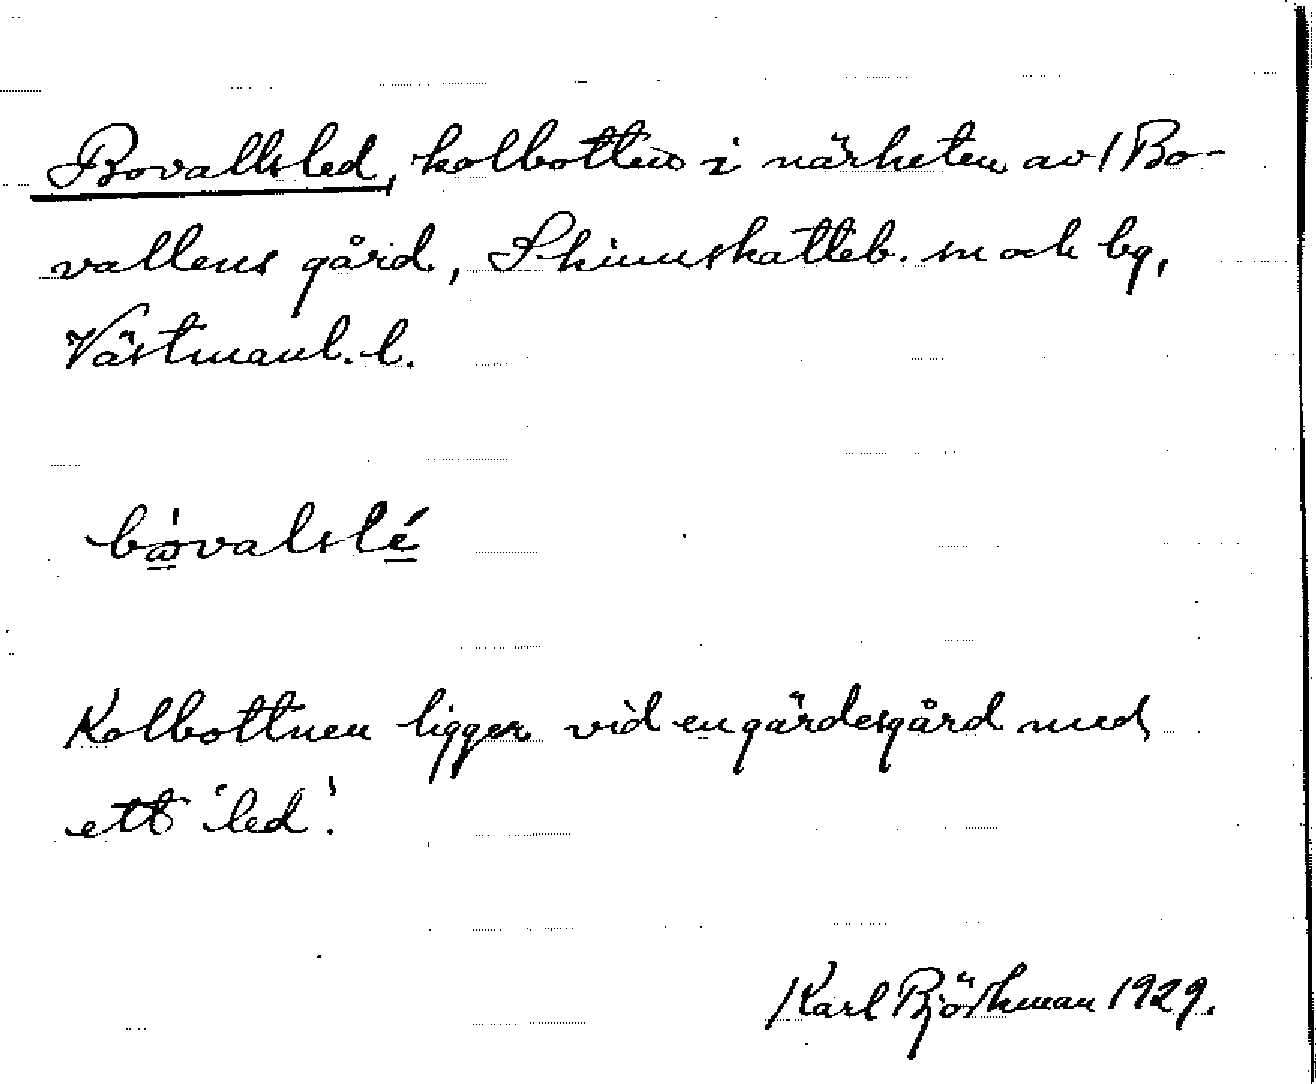 Bovallsled, kolbotten i närheten av Bo-
vallens gård, Skinnskatteb. sn och bg,
Västmanl. l.
bovalslé
Kolbottnen ligger vid en gärdesgård med
ett 'led'.
Karl Björkman 1929.